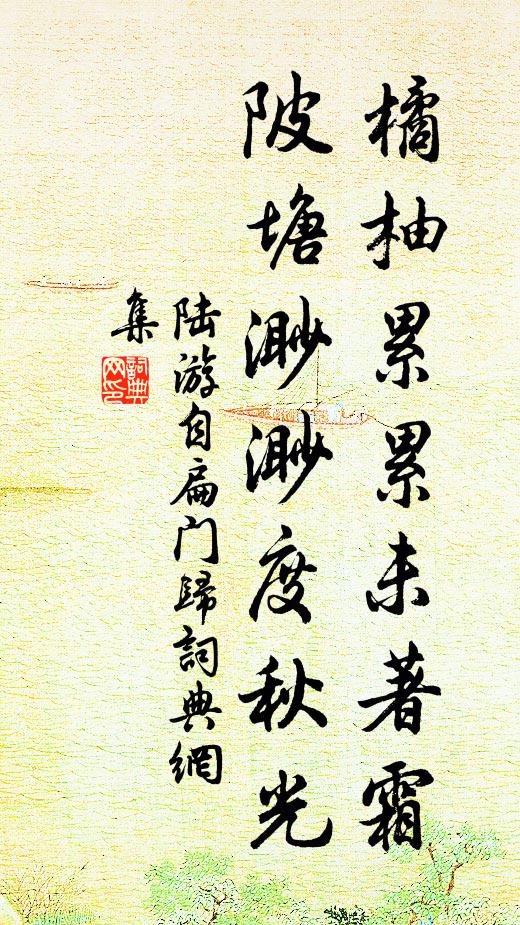 橘柚累累未著霜
陂塘渺渺度秋光
陆游自扁门歸詞典網
集
詞典
网印